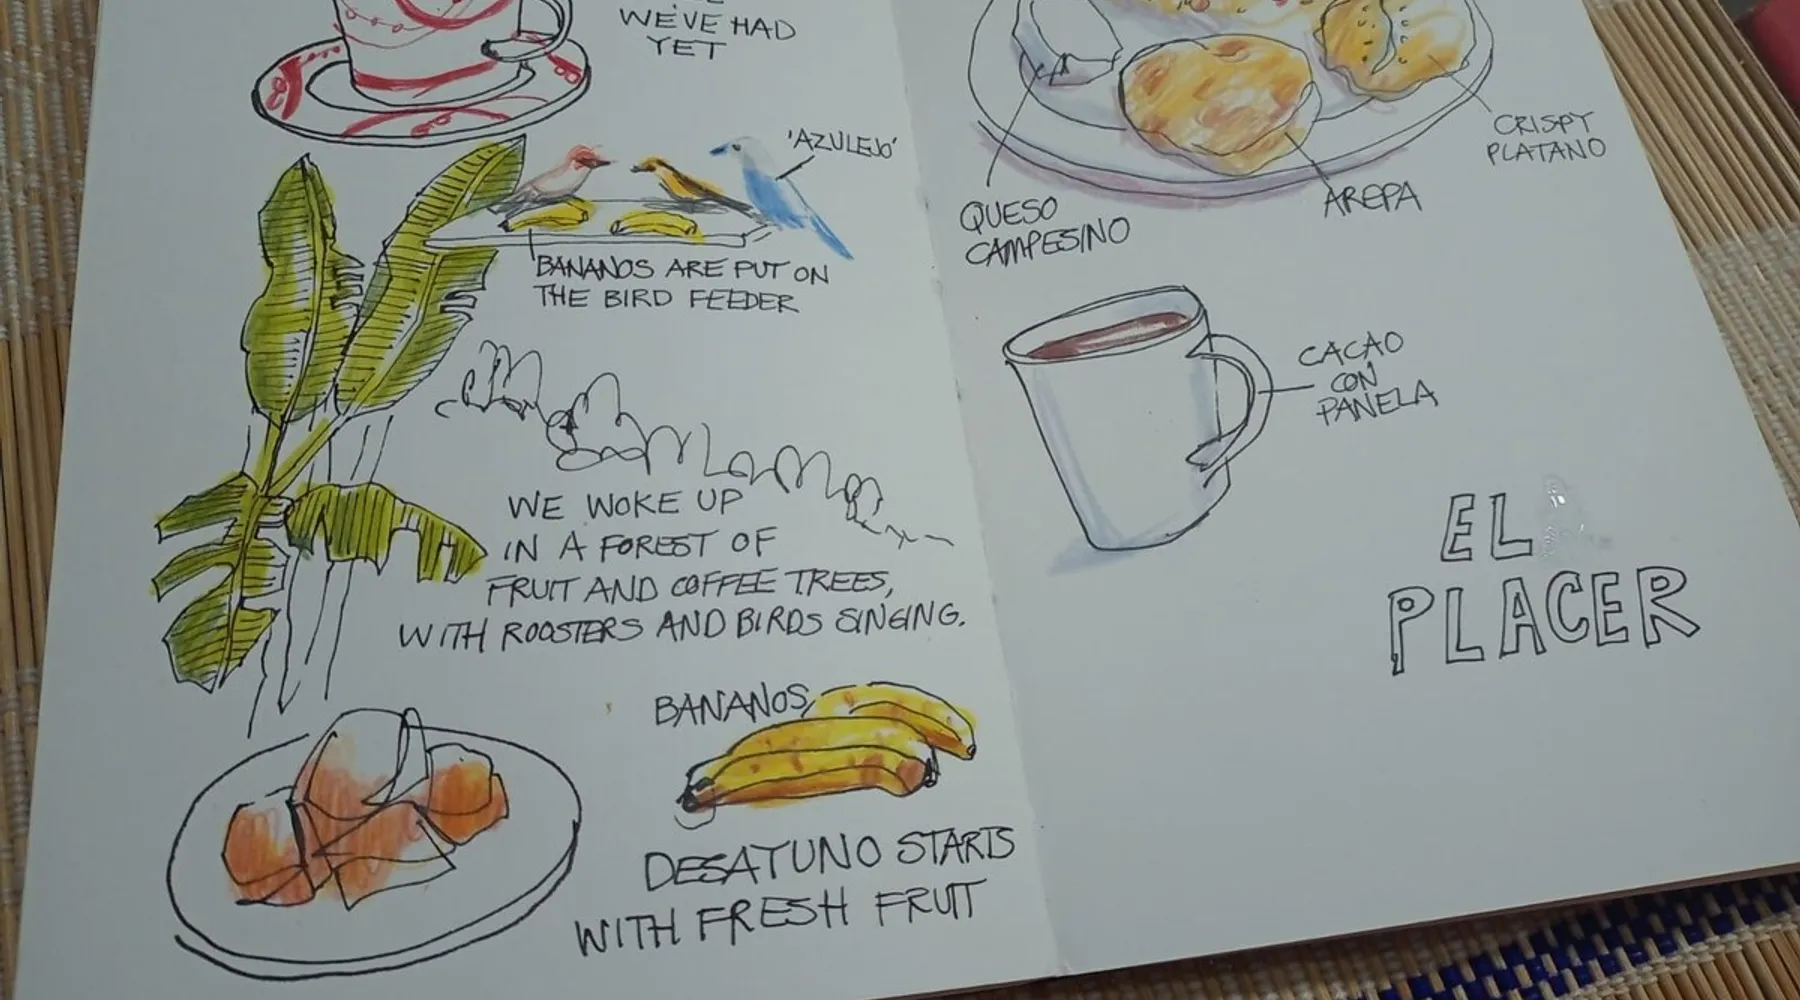 WE'VE HAD
YET
'AZULEJO'
BANANOS ARE PUT ON
THE BIRD FEEDER
WE WOKE UP
IN A FOREST OF
FRUIT AND COFFEE TREES,
WITH ROOSTERS AND BIRDS SINGING.
BANANOS
DESATUNO STARTS
WITH FRESH FRUIT
CRISPY
PLATANO
AREPA
QUESO
CAMPESINO
CACAO
CON
PANELA
EL
PLACER